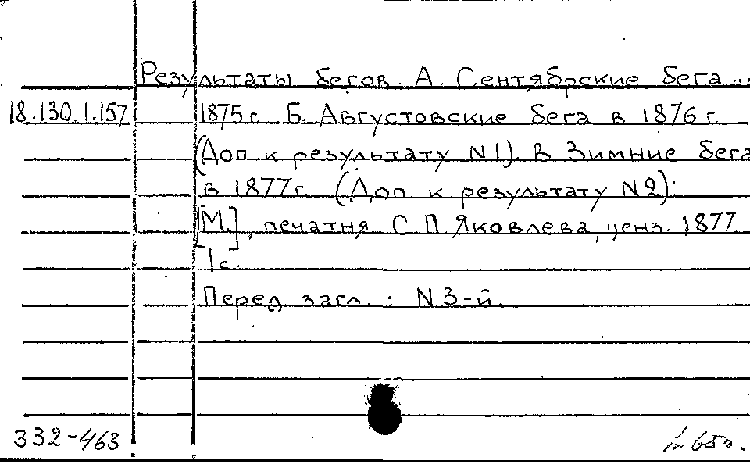 Результаты бегов. А. Сентябрские бега
18.130.1.157 1875 г. Б. Августовские бега в 1876 г.
(Доп к результату N1). В Зимние бега
в 1877г. (Доп к результату N2).
[М.], печатня С.П. Яковлева, ценз. 1877
1с.
Перед загл.: N3-й.
332-463